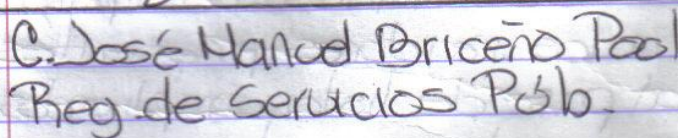 C. José Manuel Briceño Pool
Reg. de Servicios Púb.